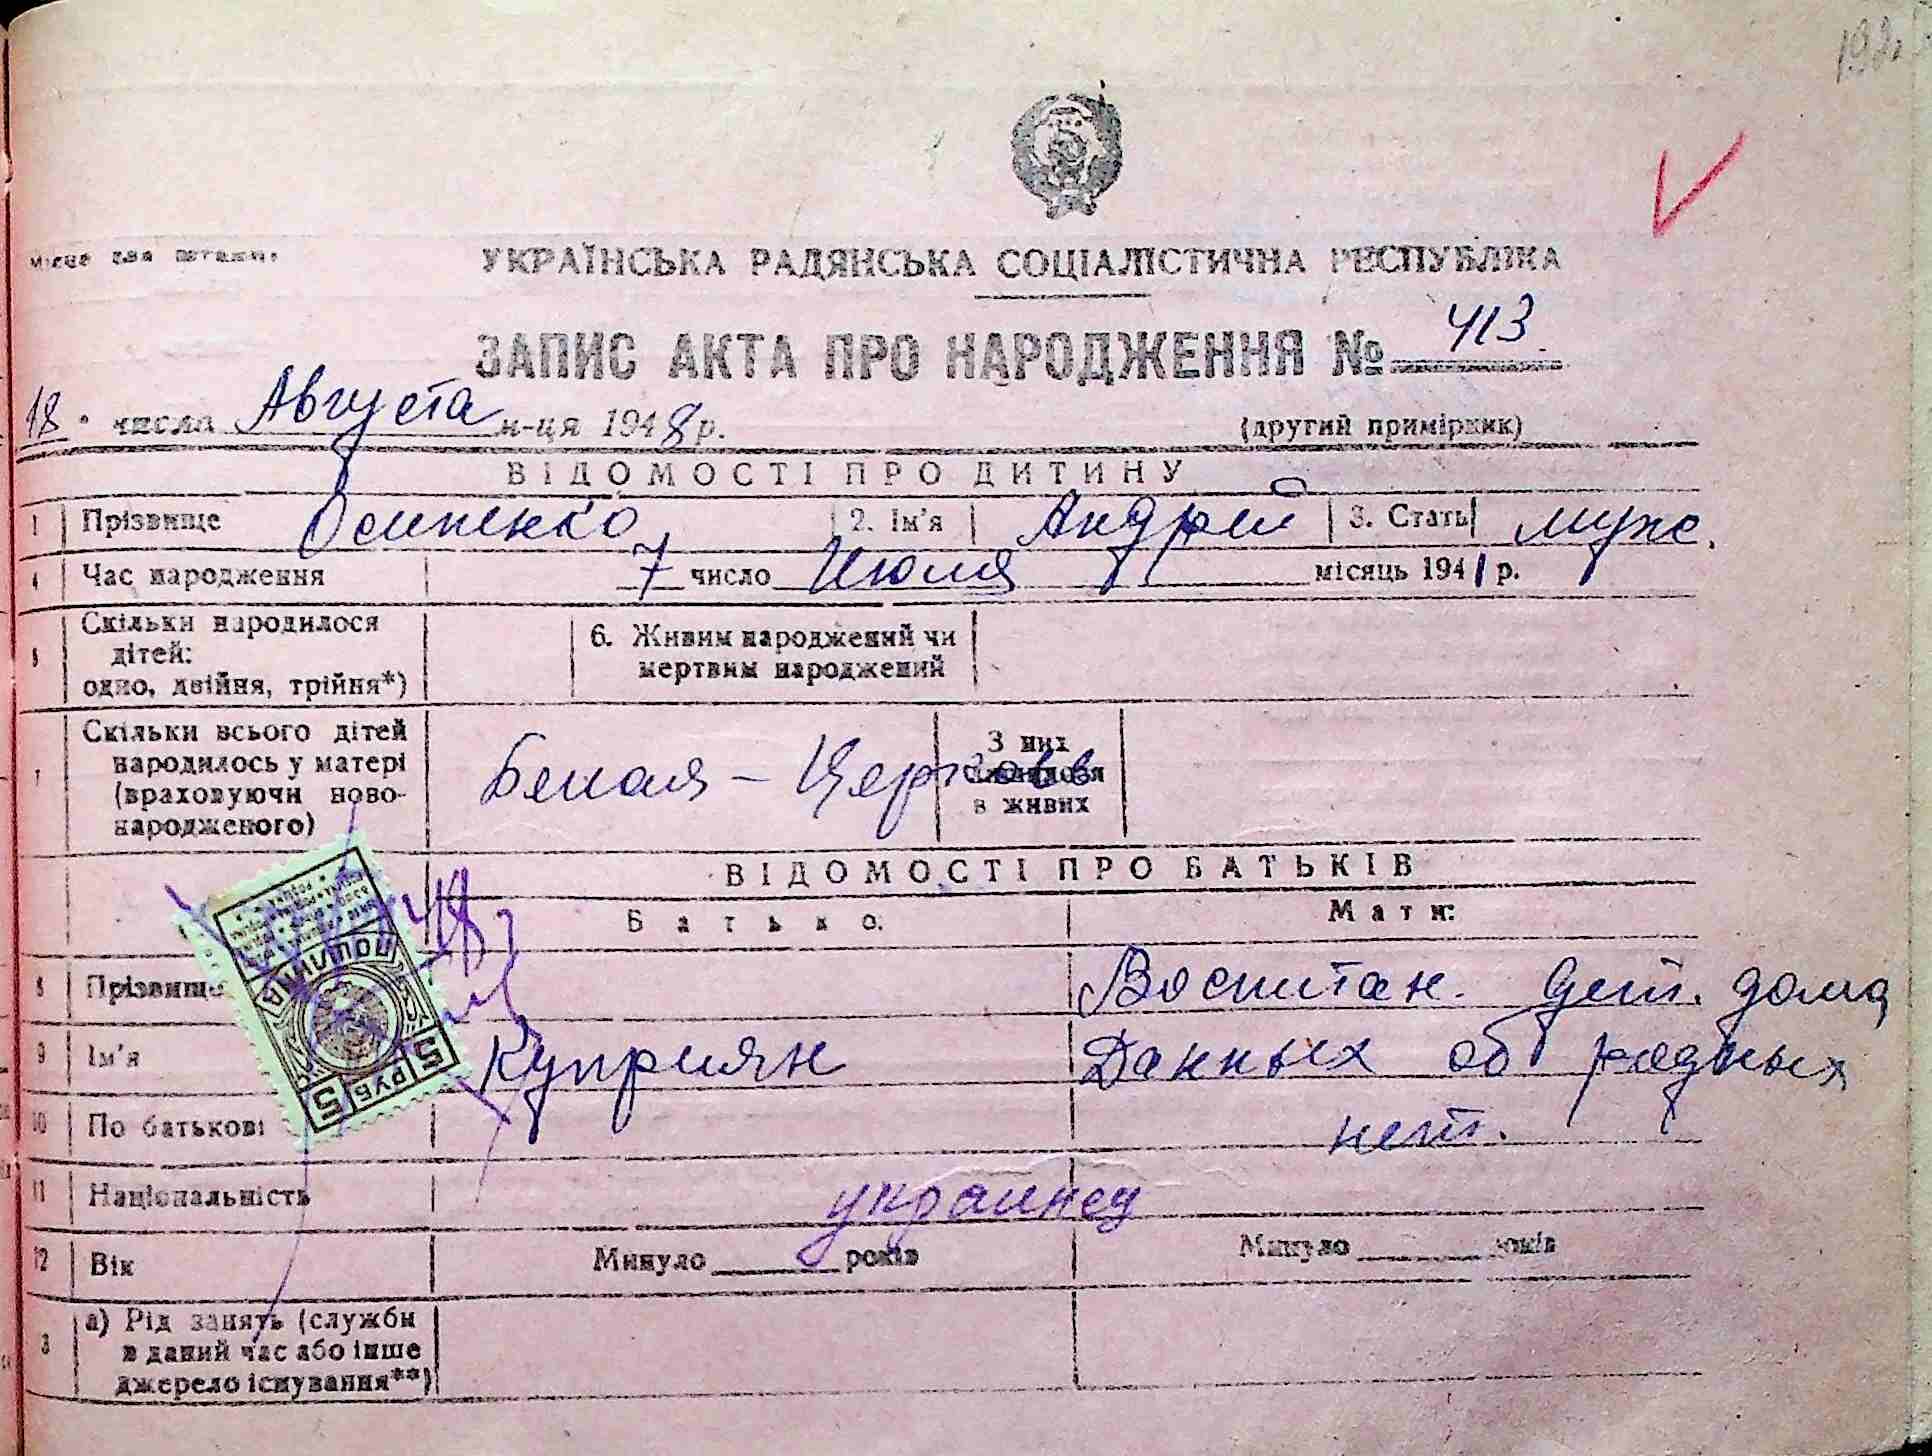 192
місце для штампа
УКРАЇНСЬКА РАДЯНСЬКА СОЦІАЛІСТИЧНА РЕСПУБЛІКА
ЗАПИС АКТА ПРО НАРОДЖЕННЯ № 413.
18 числа Августа м-ця 1948 р. (другий примірник)
ВІДОМОСТІ ПРО ДИТИНУ
1 Прізвище Осипенко 2. Ім'я Андрей 3. Стать муж.
4 Час народження 7 число Июля місяць 1941 р.
5 Скільки народилося
дітей:
одно, двійня, трійня*)
6. Живим народжений чи
мертвим народжений
7 Скільки всього дітей
народилось у матері
(враховуючи ново-
народженого)
Белая - Церковь
З них
залишилося
в живих
ВІДОМОСТІ ПРО БАТЬКІВ
Батько: Мати:
ПОШЛИНА
5 РУБ 5
48
8 Прізвище Воспитан. дет. дома
9 Ім'я Куприян Данных об родных
10 По батькові нет.
11 Національність украинец
12 Вік Минуло років Минуло років
3 а) Рід занять (служби
в даний час або інше
джерело існування**)